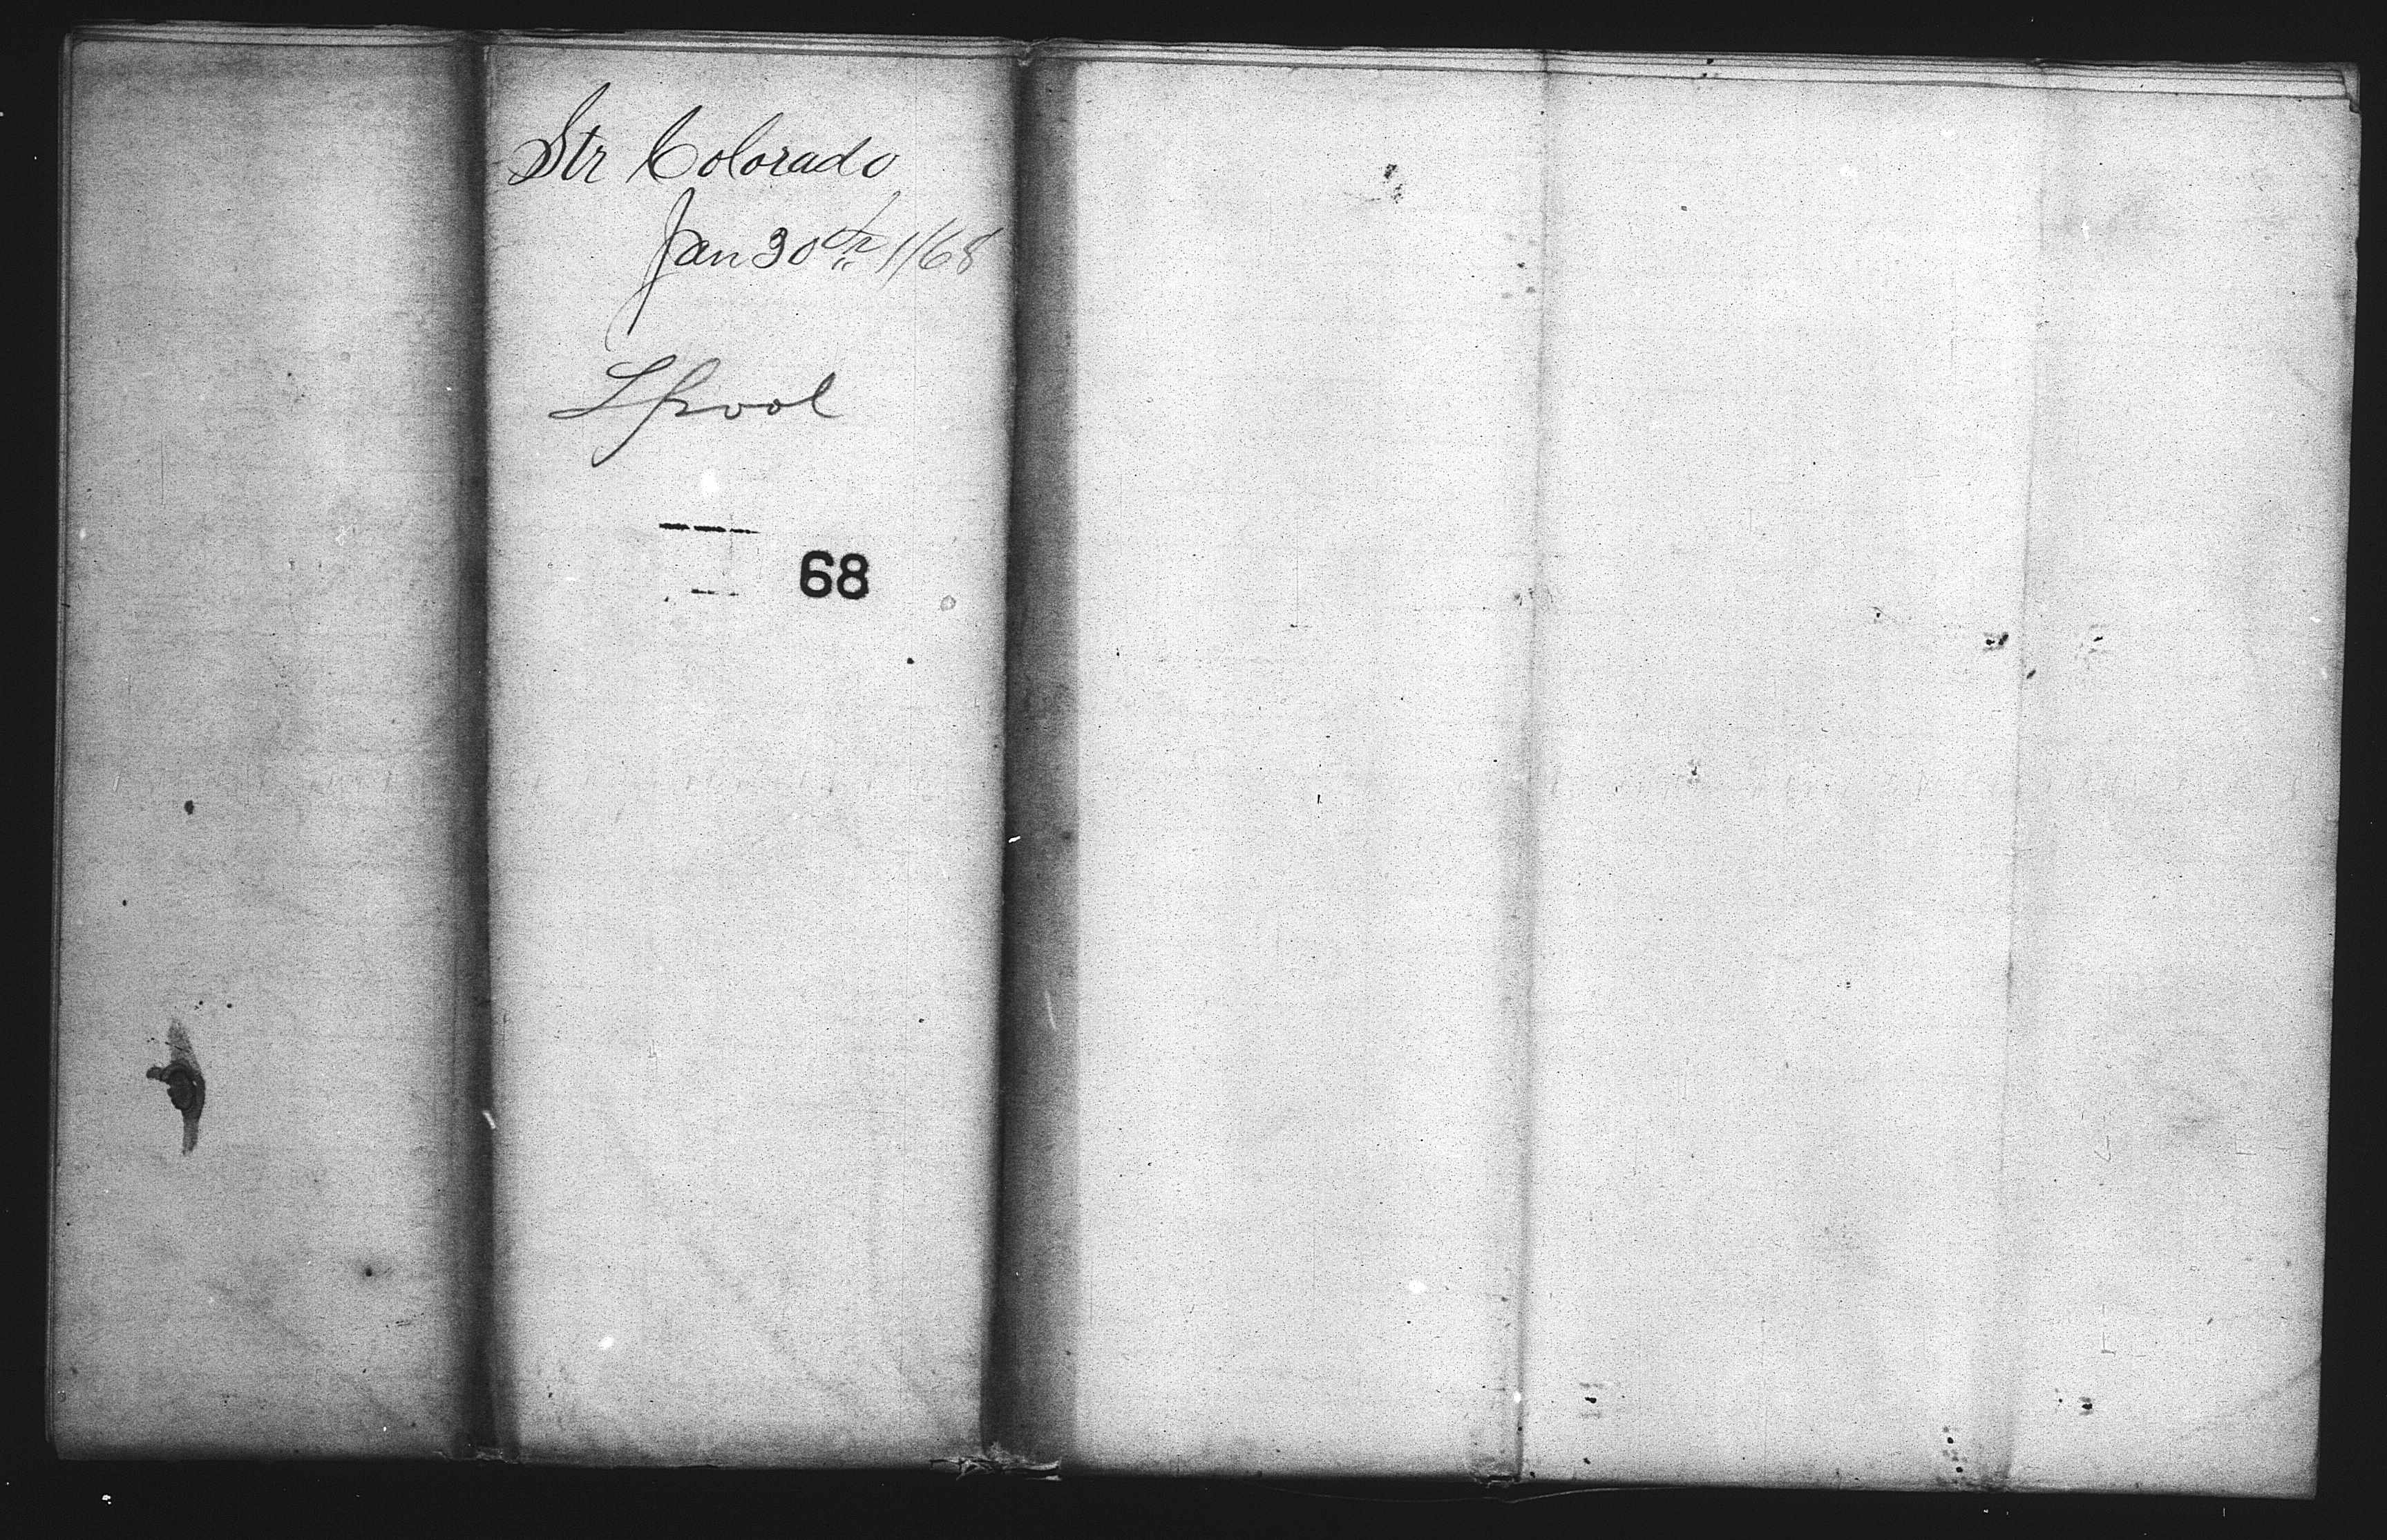 Str Colorado
Jan 30th 1/68
Lpool
68